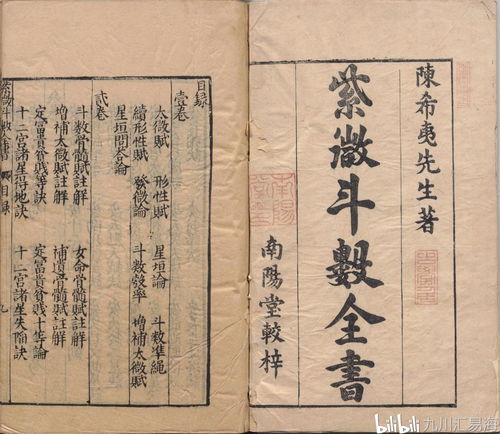 陳希夷先生著
紫微斗數全書
南陽堂較梓
目録
壹卷
太微賦 形性賦 星垣論 斗數準繩
續形性賦 發微論 斗數率 增補太微賦
星垣問答論
貳卷
斗數骨髓賦註解 女命骨髓賦註解
增補太微賦註解 補遺骨髓賦註解
定富貴貧賤等訣 定富貴貧賤十等論
十二宮諸星得地訣 十二宮諸星失陷訣
紫微斗數全書 目錄
bilibili 九川汇易海